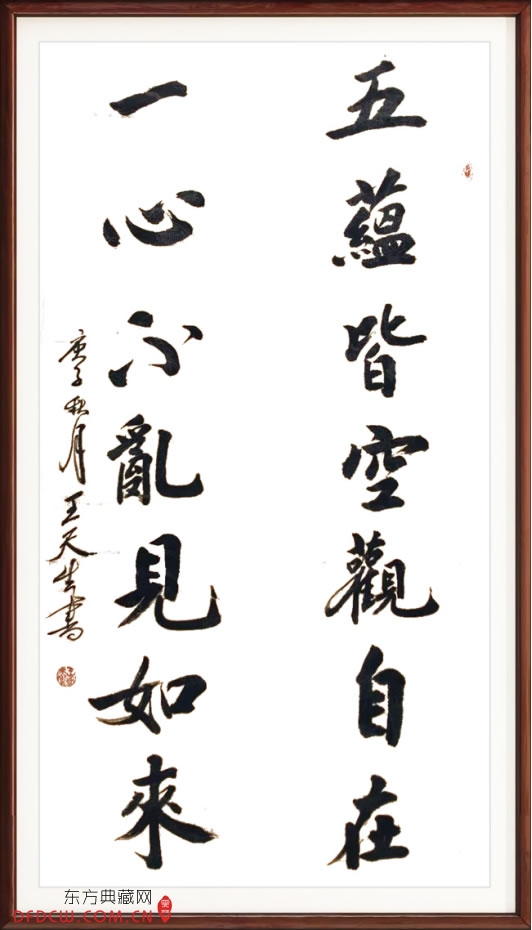 五蘊皆空觀自在
一心不亂見如來
庚子秋月王天生書
东方典藏网
DFDCW.COM.CN